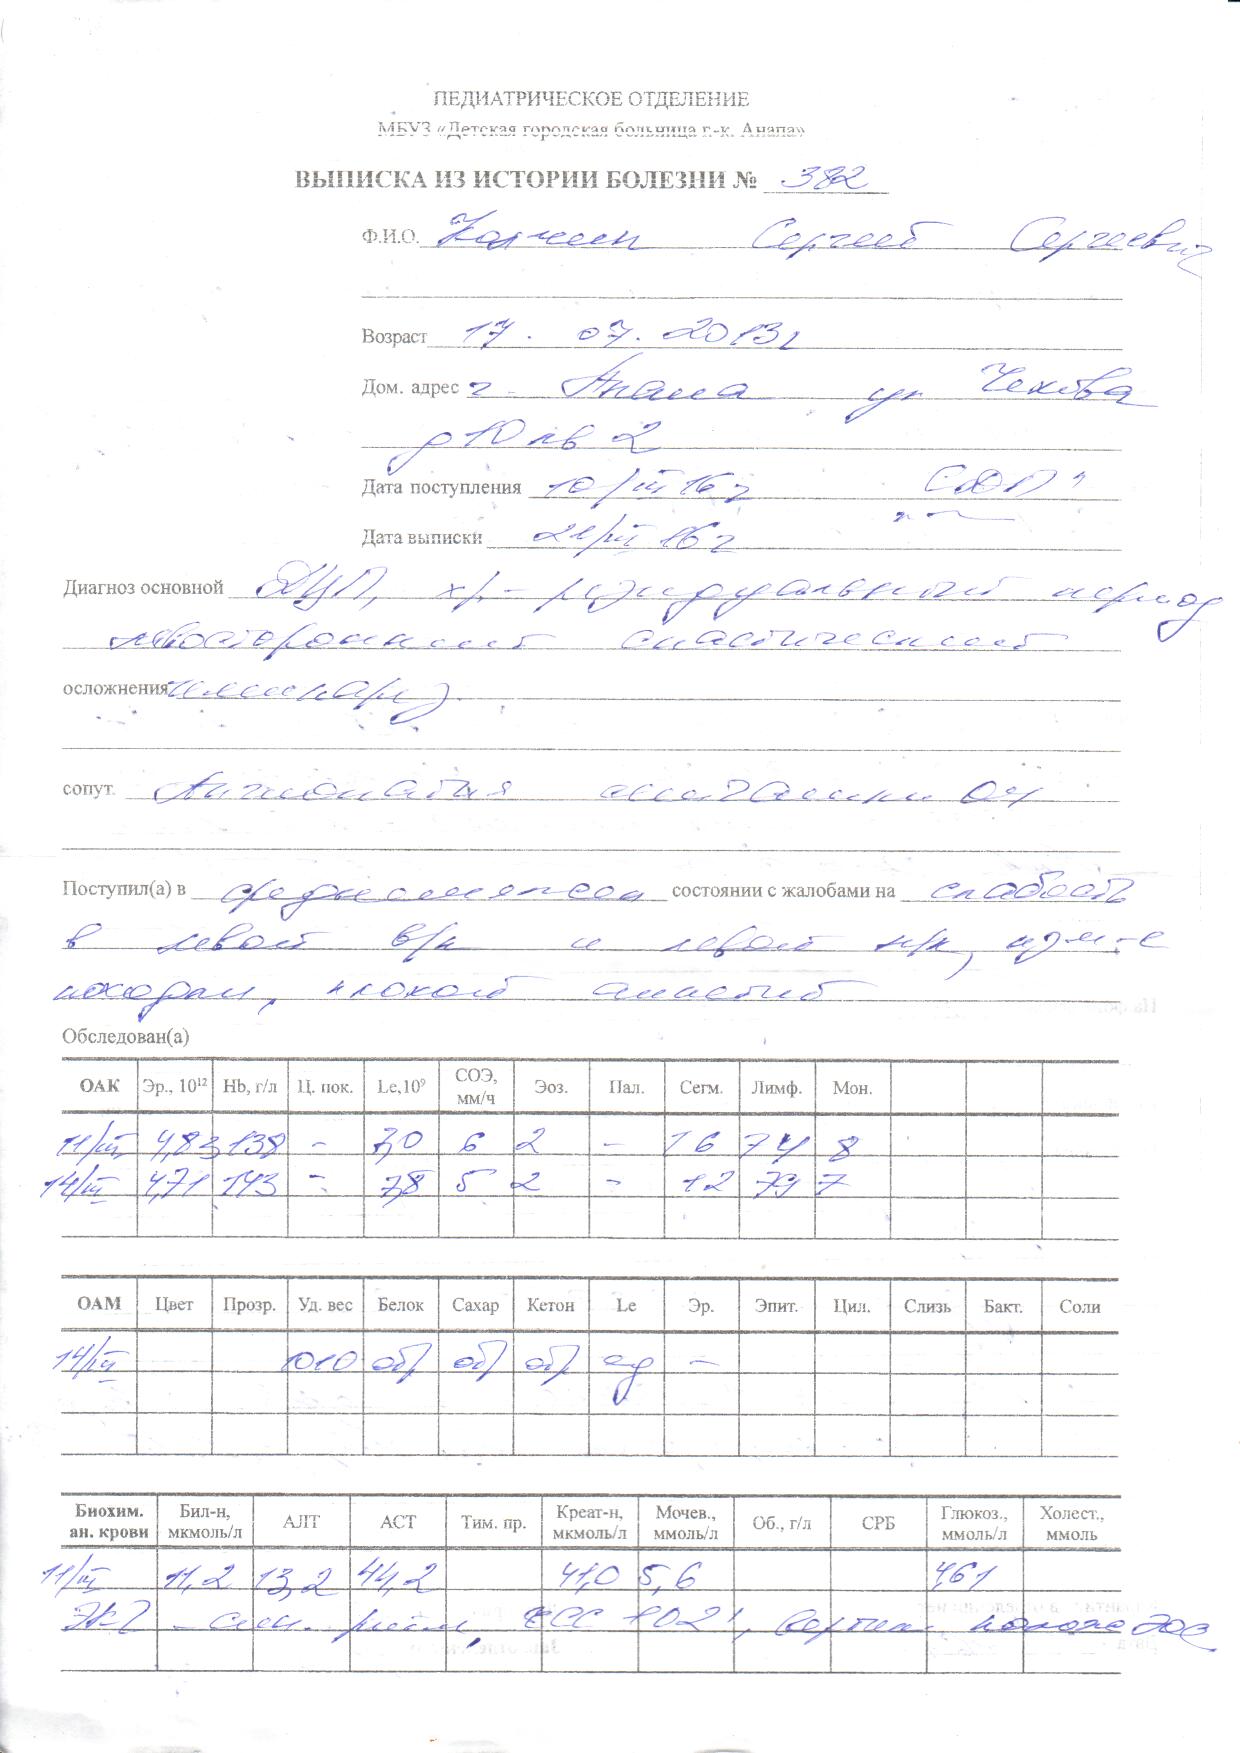 ПЕДИАТРИЧЕСКОЕ ОТДЕЛЕНИЕ
МБУЗ «Детская городская больница г.-к. Анапа»
ВЫПИСКА ИЗ ИСТОРИИ БОЛЕЗНИ № 382
Ф.И.О. Сергей Сергеевич
Возраст 17. 07. 2013г
Дом. адрес г. Анапа ул Чехова
д 10 кв 2
Дата поступления 10/III 16 г
Дата выписки 21/III 16 г
Диагноз основной ДЦП, хр.- резидуальный период
левосторонний спастический
осложнения гемипарез
сопут. Ангиопатия сетчатки ОИ
Поступил(а) в среднетяжелом состоянии с жалобами на слабость
в левой в/к и левой н/к, изм-е
походки, плохой аппетит
Обследован(а)
ОАК Эр., 10¹² Hb, г/л Ц. пок. Le,10⁹ СОЭ, мм/ч Эоз. Пал. Сегм. Лимф. Мон.
11/III 4,83 138 - 7,0 6 2 - 16 74 8
14/III 4,71 143 - 7,8 5 2 - 12 79 7
ОАМ Цвет Прозр. Уд. вес Белок Сахар Кетон Le Эр. Эпит. Цил. Слизь Бакт. Соли
14/III 1010 об/ об/ об/ ед -
Биохим. ан. крови Бил-н, мкмоль/л АЛТ АСТ Тим. пр. Креат-н, мкмоль/л Мочев., ммоль/л Об., г/л СРБ Глюкоз., ммоль/л Холест., ммоль
11/III 11,2 13,2 44,2 41,0 5,6 4,61
ЭКГ - син. ритм, ЧСС 102', вертик. полож ЭОС